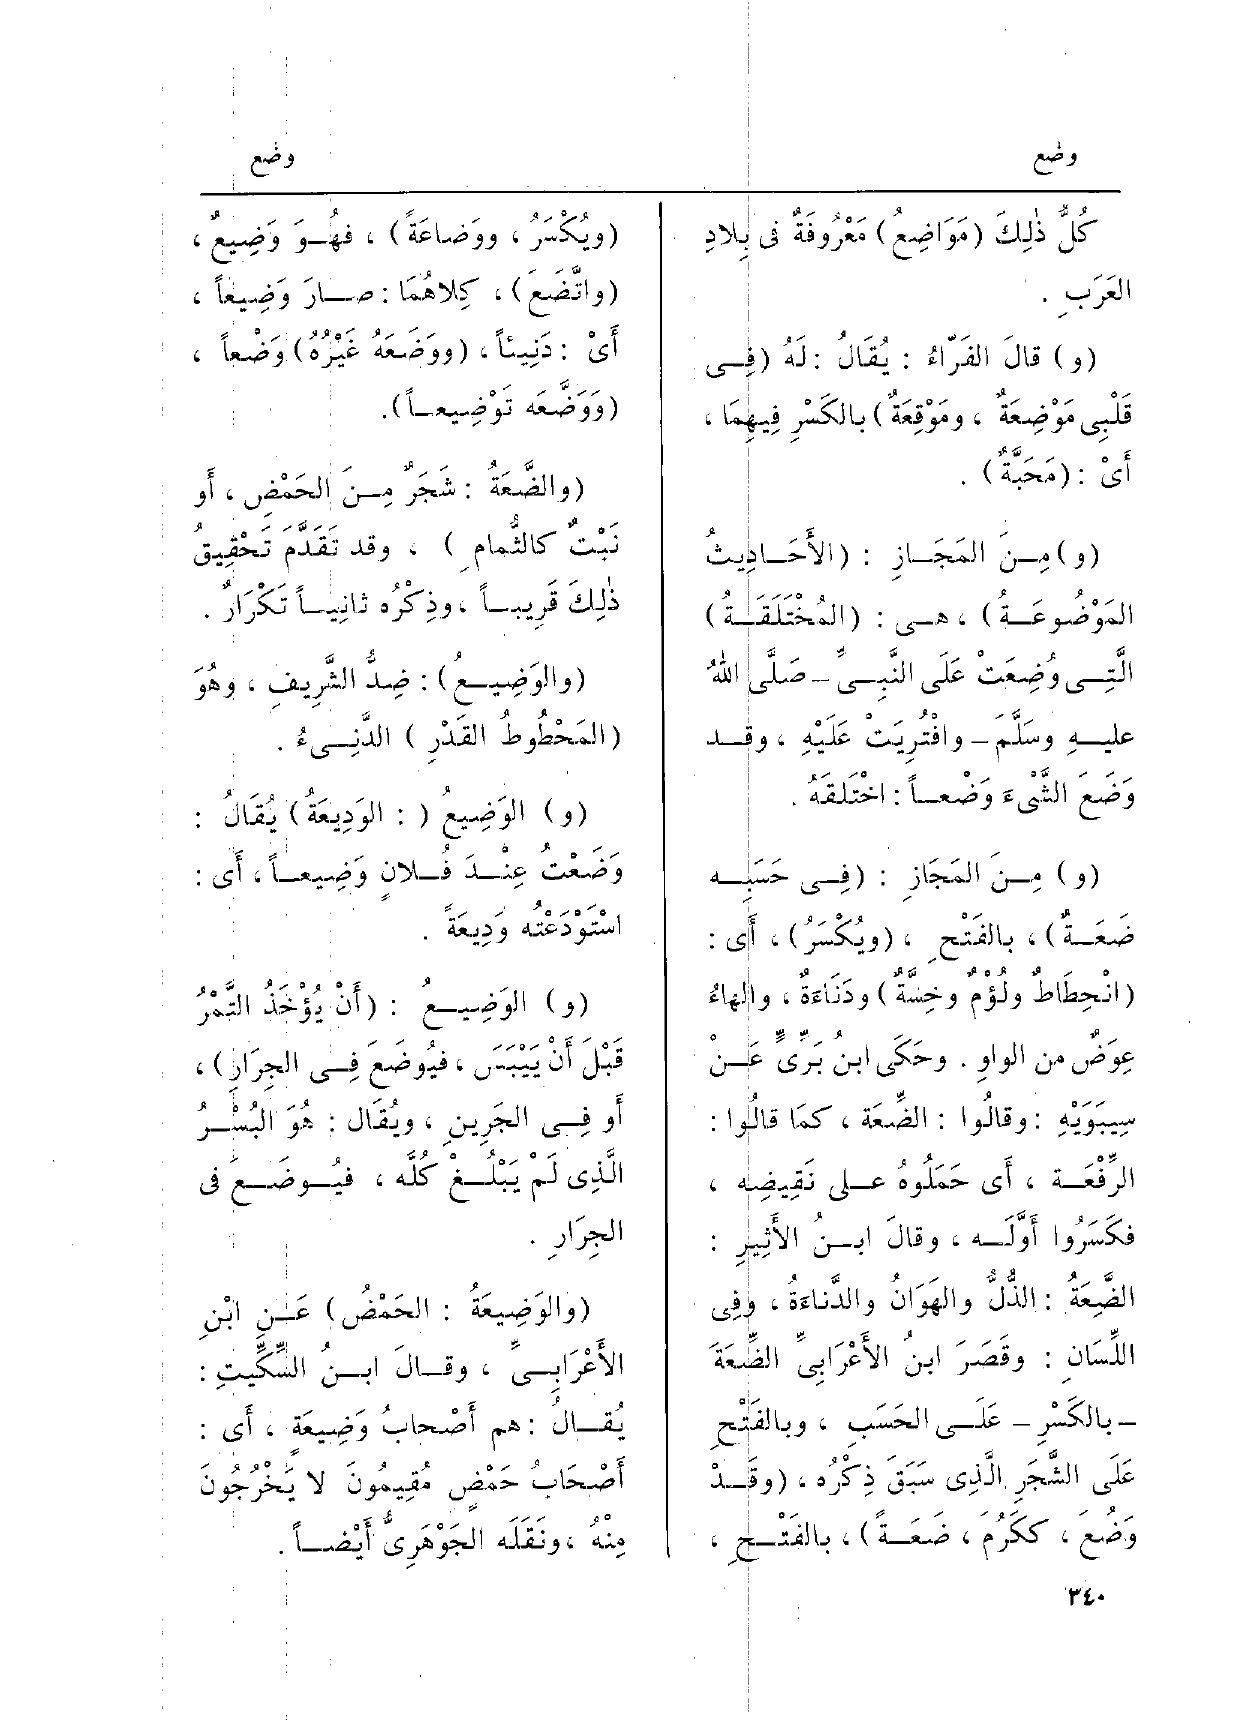 وضع
وضع
كُلُّ ذٰلِكَ (مَوَاضِعُ) مَعْرُوفَةٌ فى بِلادِ
العَرَبِ .
(و) قالَ الفَرّاءُ : يُقَالُ : لَهُ (فِــى
قَلْبِى مَوْضِعَةٌ ، ومَوْقِعَةٌ) بالكَسْرِ فِيهِمَا ،
أىْ : (مَحَبَّةٌ) .
(و) مِــنَ المَجَــازِ : (الأَحَــادِيثُ
المَوْضُوعَــةُ) ، هــى : (المُخْتَلَقَــةُ)
الَّتِــى وُضِعَتْ عَلَى النَّبِــىِّ ــ صَلَّى اللهُ
عليــهِ وسَلَّمَ ــ وافْتُرِيَتْ عَلَيْهِ ، وقــد
وَضَعَ الشَّىْءَ وَضْعــاً : اخْتَلَقَهُ .
(و) مِــنَ المَجَازِ : (فِــى حَسَبِــه
ضَعَــةٌ) ، بالفَتْحِ ، (ويُكْسَرُ) ، أى :
(انْحِطَاطٌ ولُؤْم وخِسَّةٌ) ودَنَاءَةٌ ، والهاءُ
عِوَضٌ من الواوِ . وحَكَى ابنُ بَرِّىٍّ عَــنْ
سِيبَوَيْهِ : وقالُوا : الضِّعَة ، كما قالُوا :
الرِّفْعَــة ، أى حَمَلُوهُ عــلى نَقِيضِه ،
فكَسَرُوا أَوَّلَــه ، وقالَ ابــنُ الأَثِيرِ :
الضَّعَةُ : الذُّلُّ والهَوَانُ والدَّناءَةُ ، وفِى
اللِّسَانِ : وقَصَرَ ابنُ الأَعْرَابِىِّ الضِّعَةَ
ــ بالكَسْرِ ــ عَلَــى الحَسَبِ ، وبالفَتْحِ
عَلَى الشَّجَرِ الَّذِى سَبَقَ ذِكْرُه ، (وقَــدْ
وَضُعَ ، ككَرُمَ ، ضَعَــةً) ، بالفَتْــحِ ،
(ويُكْسَرُ ، ووَضاعَةً) ، فهُــوَ وَضِيعٌ ،
(واتَّضَعَ) ، كِلاهُمَا : صــارَ وَضِيعاً ،
أَىْ : دَنِيئاً ، (ووَضَعَهُ غَيْرُهُ) وَضْعاً ،
(وَوَضَّعَه تَوْضِيعــاً).
(والضَّعَةُ : شَجَرٌ مِــنَ الحَمْضِ ، أَو
نَبْتٌ كالثُّمامِ) ، وقد تَقَدَّمَ تَحْقِيقُ
ذٰلِكَ قَرِيبــاً ، وذِكْرُه ثانِيــاً تَكْرَارٌ .
(والوَضِيــعُ) : ضِدُّ الشَّرِيفِ ، وهُوَ
(المَحْطُوطُ القَدْرِ ) الدَّنِــىءُ .
(و) الوَضِيعُ ( : الوَدِيعَةُ) يُقَالُ :
وَضَعْتُ عِنْــدَ فُــلانٍ وَضِيعــاً ، أَى :
اسْتَوْدَعْتُه وَدِيعَةً .
(و) الوَضِيــعُ : (أَنْ يُؤْخَذَ التَّمْرُ
قَبْلَ أَنْ يَيْبَسَ ، فيُوضَعَ فِــى الجِرَارِ) ،
أَو فِــى الجَرِينِ ، ويُقَال : هُوَ البُسْــرُ
الَّذِى لَمْ يَبْلُــغْ كُلُّه ، فيُــوضَــعُ فى
الجِرَارِ .
(والوَضِيعَةُ : الحَمْضُ) عَــنِ ابْنِ
الأَعْرَابِــىِّ ، وقــالَ ابــنُ السِّكِّيتِ :
يُقــالُ : هم أَصْحابُ وَضِيعَةٍ ، أَى :
أَصْحابُ حَمْضٍ مُقِيمُونَ لا يَخْرُجُونَ
مِنْهُ ، ونَقَلَه الجَوْهَرِىُّ أَيْضــاً .
٣٤٠